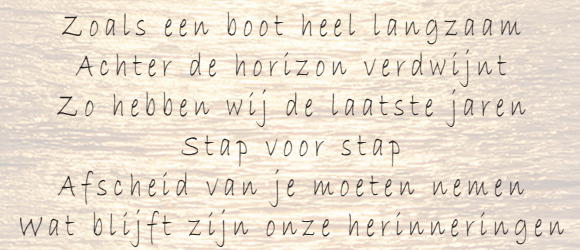 Zoals een boot heel langzaam
Achter de horizon verdwijnt
Zo hebben wij de laatste jaren
Stap voor stap
Afscheid van je moeten nemen
Wat blijft zijn onze herinneringen